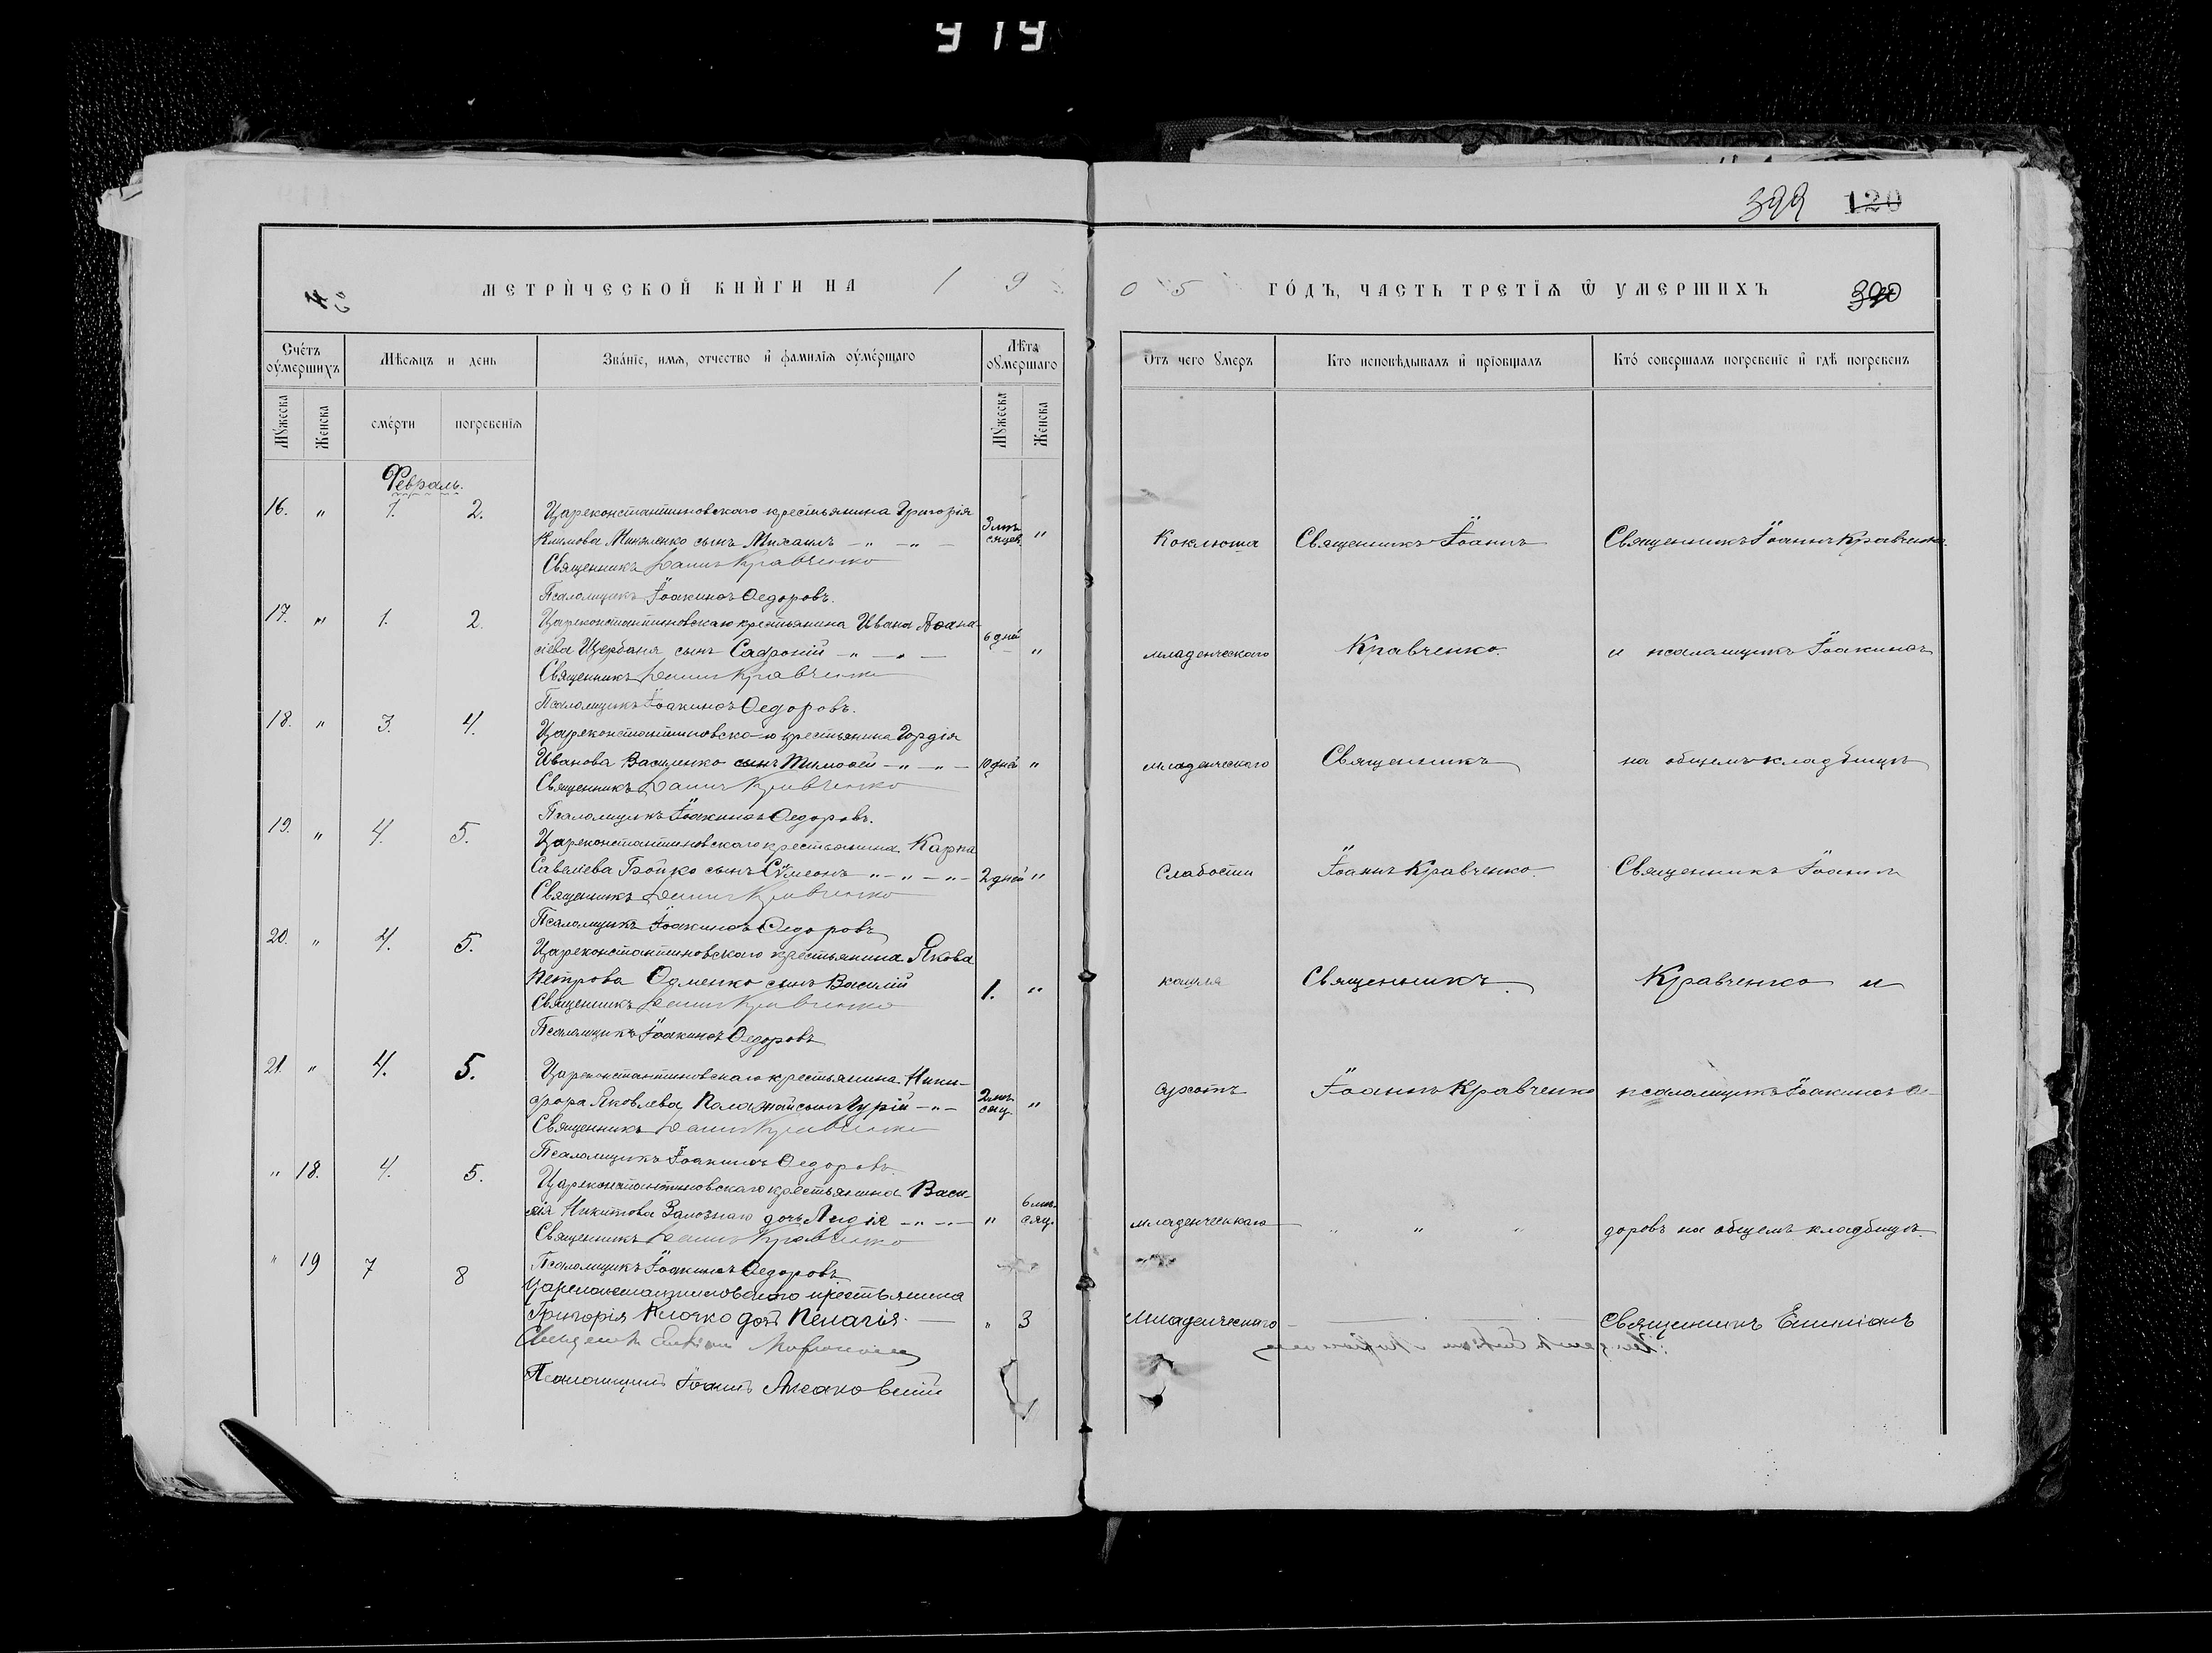 919
399 120
МЕТРИЧЕСКОЙ КНИГИ НА 1905 ГОДЪ, ЧАСТЬ ТРЕТІЯ Ѿ УМЕРШИХЪ
Счётъ оумершихъ
Мѣсяцъ и день
Званіе, имя, отчество и фамилія оумершаго
Лѣта оумершаго
Отъ чего умеръ
Кто исповѣдывалъ и пріобщалъ
Кто совершалъ погребеніе и гдѣ погребенъ
Мужеска
Женска
смерти
погребенія
Мужеска
Женска
Февраль.
16. " 1. 2. Цареконстантиновскаго крестьянина Григорія
Климова сынъ Михаилъ 3 мѣсяцев. "
Коклюша Священникъ Іоаннъ Священникъ Іоаннъ Кравченко
Священникъ Іоаннъ Кравченко
Псаломщикъ Іоакимъ Ѳедоровъ.
17. " 1. 2. Цареконстантиновскаго крестьянина Ивана Аѳана-
сіева Щербаня сынъ Сафроній 6 дней "
младенческаго Кравченко. и псаломщикъ Іоакимъ
Священникъ Іоаннъ Кравченко
Псаломщикъ Іоакимъ Ѳедоровъ.
18. " 3. 4. Цареконстантиновскаго крестьянина Гордія
Иванова Василенко сынъ Тимоѳей 10 дней "
младенческаго Священникъ на общемъ кладбищѣ
Священникъ Іоаннъ Кравченко
Псаломщикъ Іоакимъ Ѳедоровъ.
19. " 4. 5. Цареконстантиновскаго крестьянина Карпа
Савеліева Бойко сынъ Сѵмеонъ 2 дней "
Слабости Іоаннъ Кравченко. Священникъ Іоаннъ
Священникъ Іоаннъ Кравченко
Псаломщикъ Іоакимъ Ѳедоровъ
20. " 4. 5. Цареконстантиновскаго крестьянина Якова
Петрова сынъ Василій 1. "
кашля Священникъ Кравченко и
Священникъ Іоаннъ Кравченко
Псаломщикъ Іоакимъ Ѳедоровъ
21. " 4. 5. Цареконстантиновскаго крестьянина Ники-
фора Яковлева сынъ Гурій 2 мѣсяц. "
сухотъ Іоаннъ Кравченко псаломщикъ Іоакимъ Ѳе-
Священникъ Іоаннъ Кравченко
Псаломщикъ Іоакимъ Ѳедоровъ.
" 18. 4. 5. Цареконстантиновскаго крестьянина Васи-
лія Никитова дочь Лидія " 6 мѣсяц.
младенческаго " " " доровъ на общемъ кладбищѣ.
Священникъ Іоаннъ Кравченко
Псаломщикъ Іоакимъ Ѳедоровъ
" 19 7 8 Цареконстантиновскаго крестьянина
Григорія Клочко дочь Пелагія " 3
Младенческаго Священникъ
Священникъ
Псаломщикъ Іоаннъ